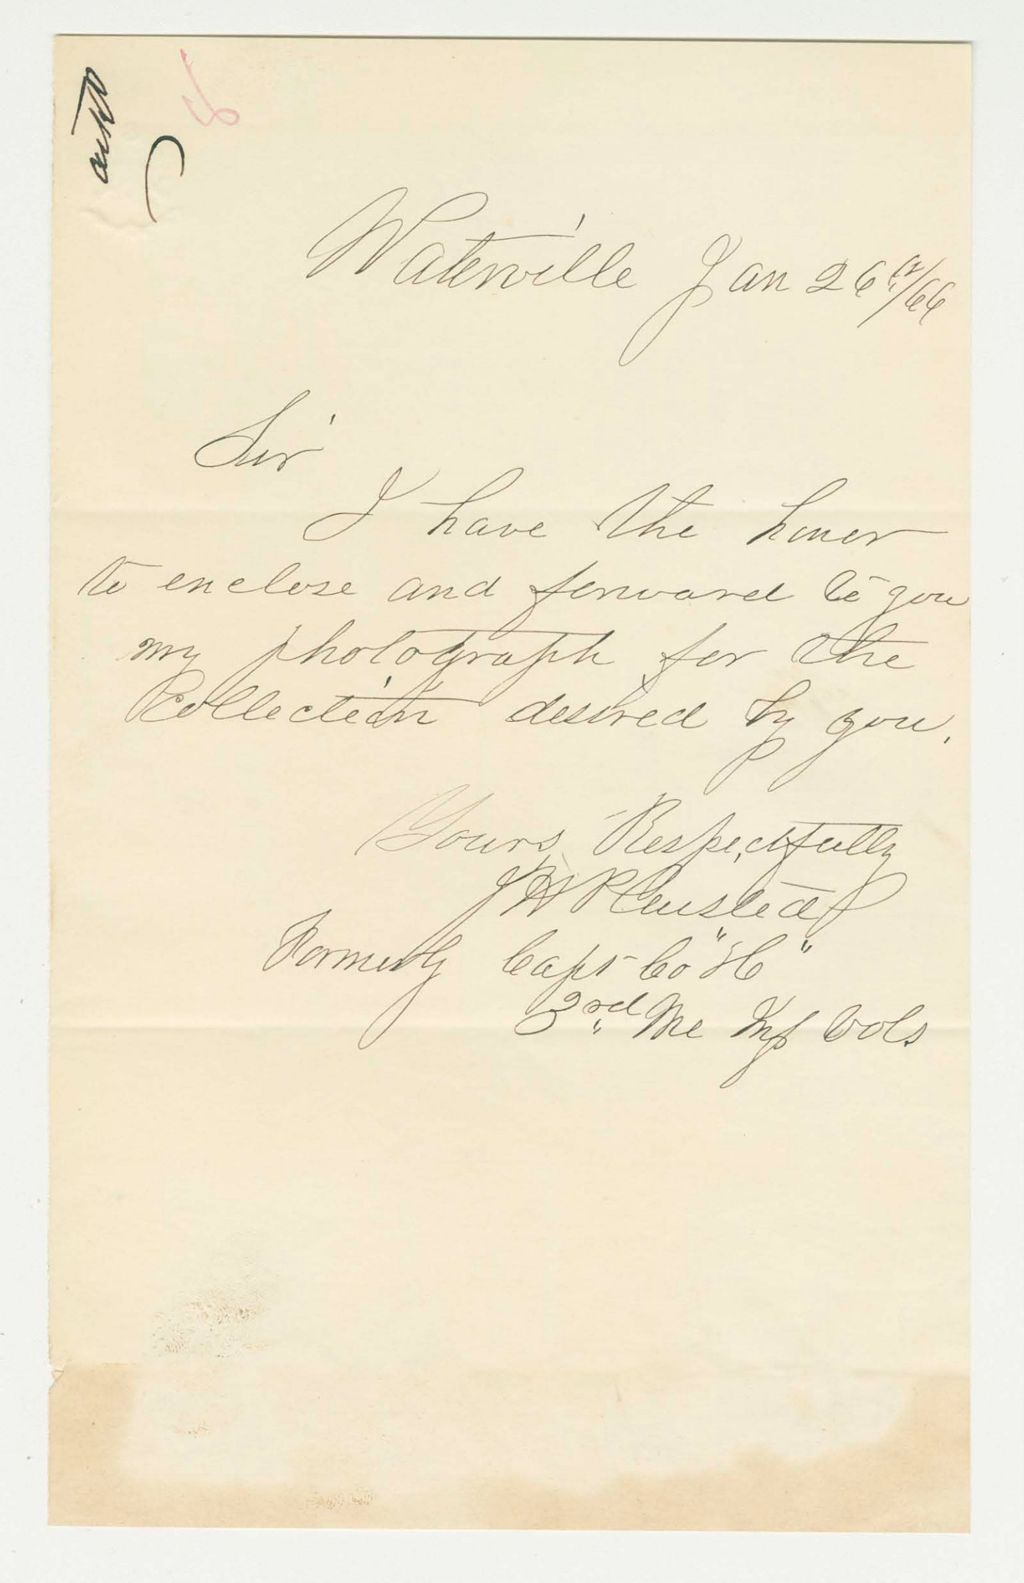 Waterville Jan 26th/66
Sir
I have the honor
to enclose and forward to you
my photograph for the
Collection desired by you.
Yours Respectfully
J H Plaisted
Formerly Capt Co "H"
3rd Me Inf Vols